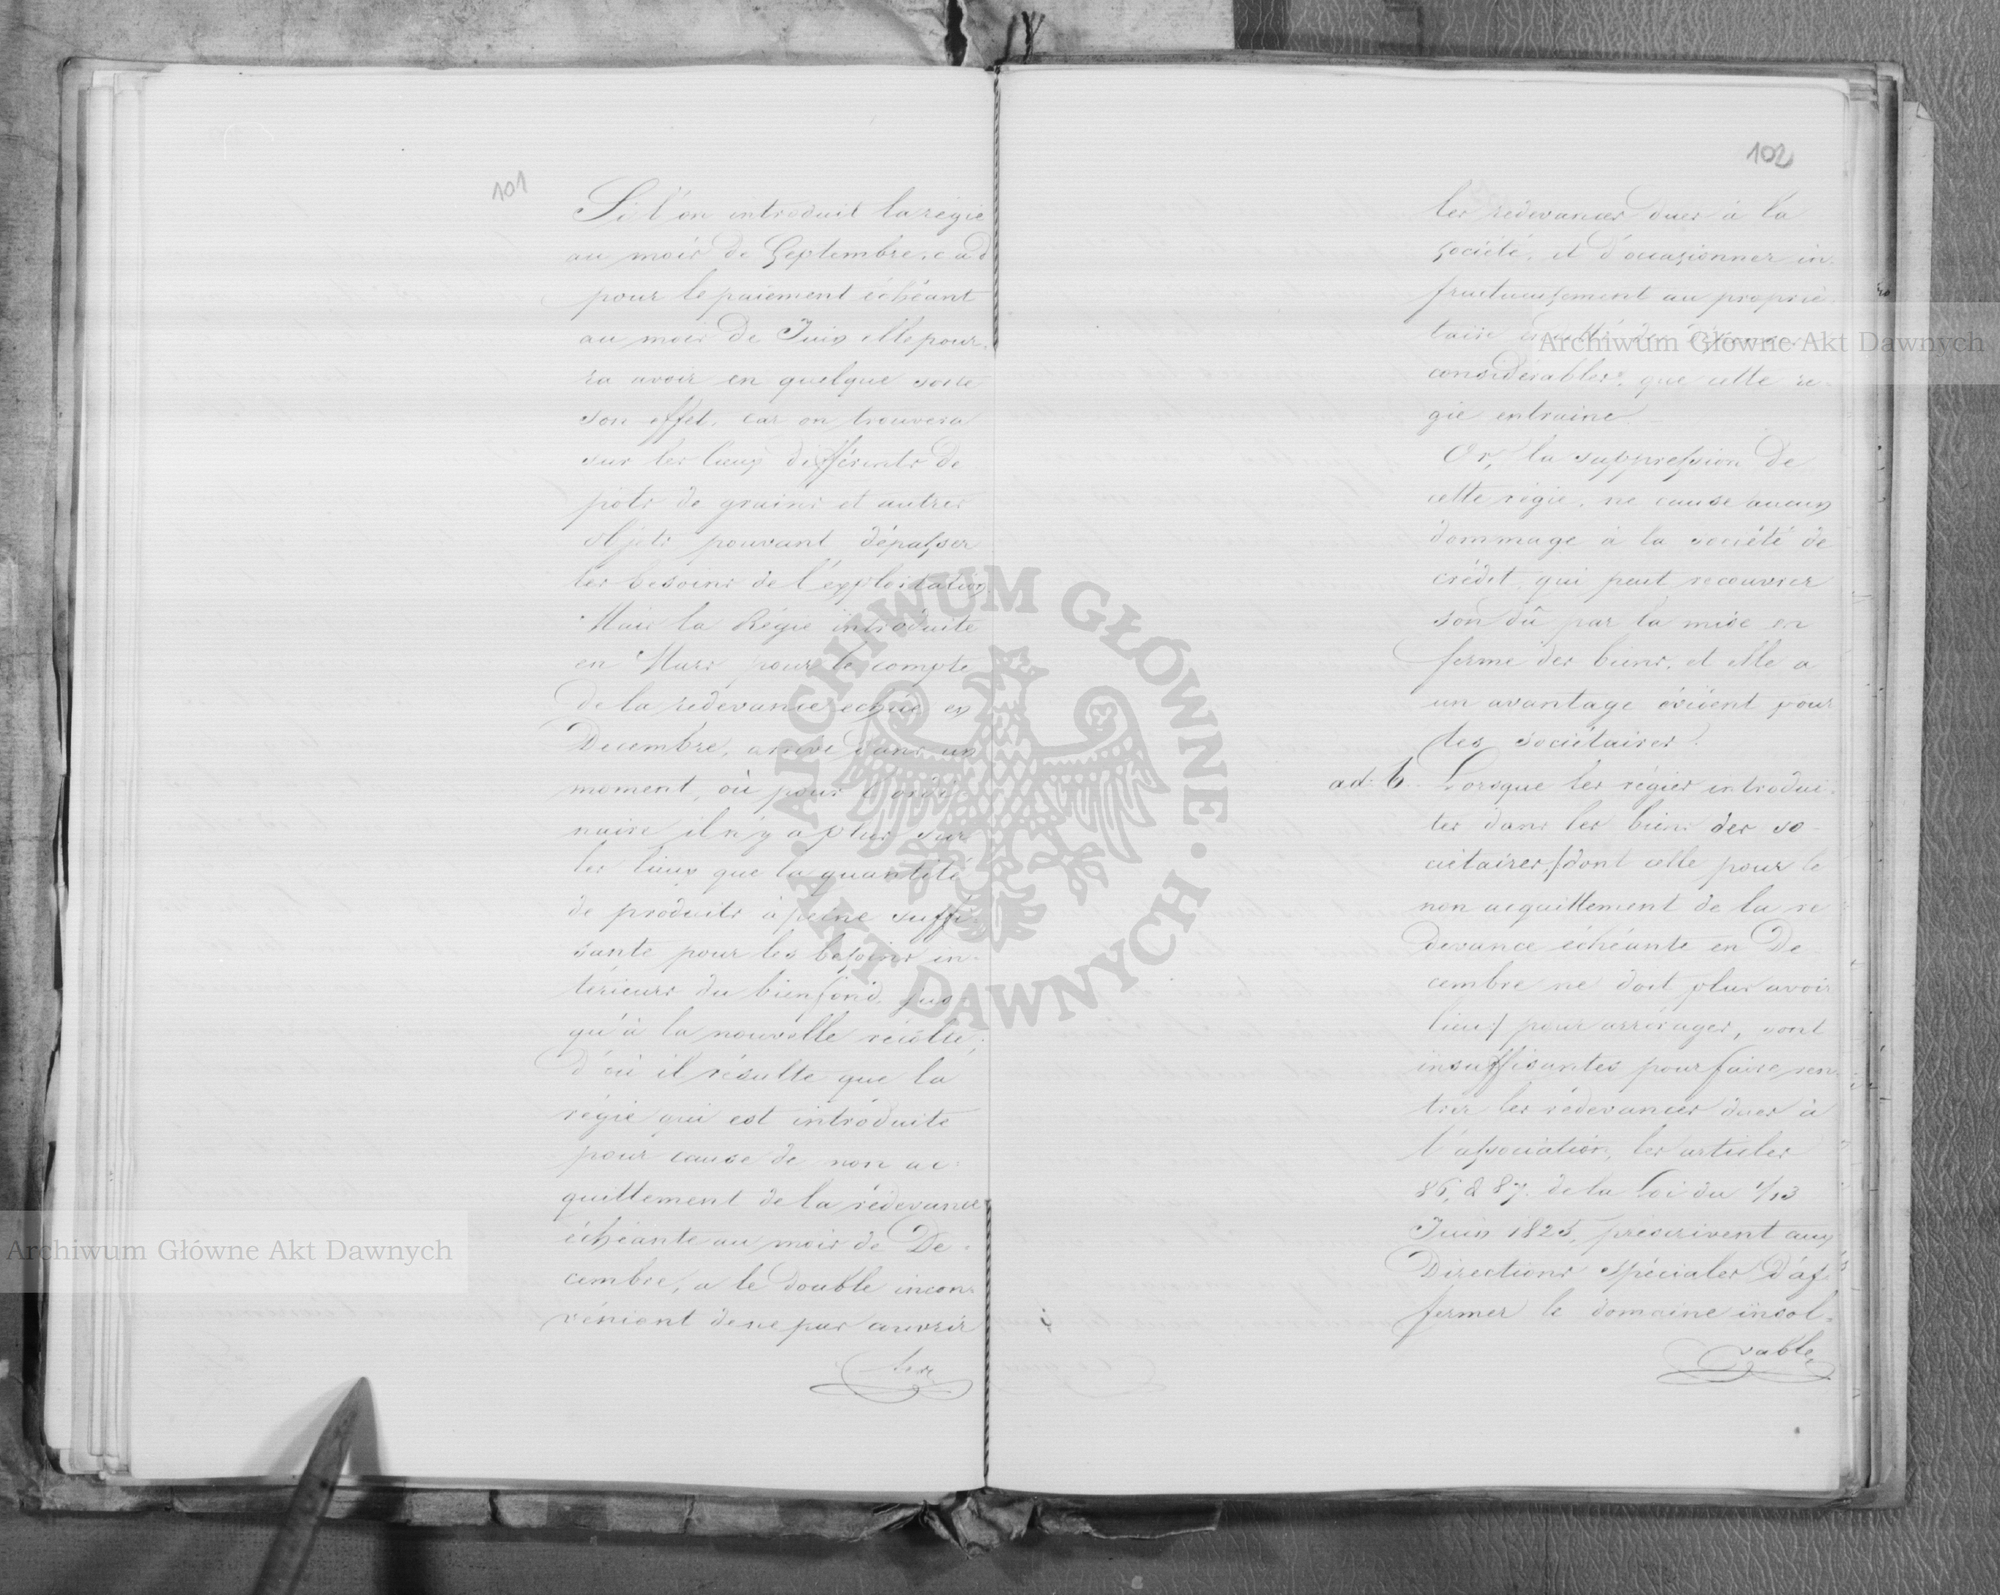 101
Si l'on introduit la régie
au mois de Septembre, c a d
pour le paiement échéant
au mois de Juin elle pour,
ra avoir en quelque sorte
son effet, car on trouvera
sur les lieux différents dé
pôts de grains et autres
objets pouvant dépasser
les besoins de l'exploitation.
Mais la Régie introduite
en Mars pour le compte
de la redevance echue en
Decembre, arrive dans un
moment, où pour l'ordi
naire il n'y a plus sur
les lieux que la quantité
de produits à peine suffi,
sante pour les besoins in,
térieurs du bienfond jus,
qu'à la nouvelle récolte;
d'où il résulte que la
régie qui est introduite
pour cause de non ac,
quittement de la rédevance
échéante au mois de De,
cembre, a le double incon,
vénient de ne pas couvrir
les
102
les redevances dues à la
société, et d'occasionner in,
fructueusement au proprié,
taire endetté des dépenses
considérables, que cette ré,
gie entraine.
Or, la suppression de
cette régie, ne cause aucun
dommage à la société de
crédit qui peut recouvrer
son dû par la mise en
ferme des biens, et elle a
un avantage évident pour
les sociétaires.
ad. b. Lorsque les régies introdui,
tes dans les biens des so,
ciétaires /:dont celle pour le
non acquittement de la re
devance échéante en De,
cembre ne doit plus avoir
lieu:/ pour arrérages, sont
insuffisantes pour faire ren,
trer les rédevances dues à
l'association, les articles
86, & 87. de la loi du 1/13
Juin 1825, préscrivent aux
Directions spéciales d'af,
fermer le domaine insol,
vable,
Archiwum Główne Akt Dawnych
Archiwum Główne Akt Dawnych
ARCHIWUM GŁÓWNE · AKT DAWNYCH ·